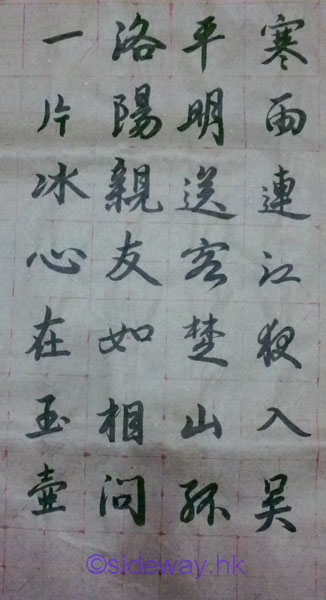 寒雨連江夜入吴
平明送客楚山孤
洛陽親友如相問
一片冰心在玉壺
©sideway.hk